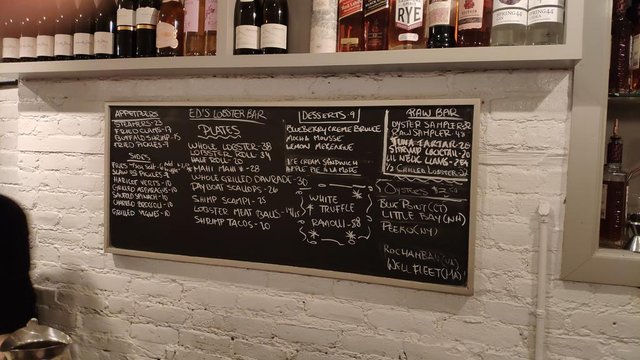 APPETIZERS
STEAMERS-23
FRIED CLAMS-17
BUFFALO SHRIMP-
FRIED PICKLES-9
SIDES
FRIES
HARICOT VERTS-10
GRILLED ASPARAGUS
SAUTEED SPINACH-10
CHARRED BROCCOLI-10
GRILLED VEGGIES-10
ED'S LOBSTER BAR
PLATES
WHOLE LOBSTER-38
LOBSTER ROLL 34
HALF ROLL-20
MAHI MAHI $-28
WHOLE GRILLED DAURADE-30
DAYBOAT SCALLOPS-26
SHRIMP SCAMPI-25
LOBSTER MEAT BALLS-
SHRIMP TACOS-20
DESSERTS-9
BLUEBERRY CREME BRULEE
MOCHA MOUSSE
LEMON MERENGUE
ICE CREAM SANDWICH
APPLE PIE A LA MODE
WHITE
TRUFFLE
RAVIOLI-58
RAW BAR
OYSTER SAMPLER-32
RAW SAMPLER-48
TUNA TARTAR-20
SHRIMP COCKTAIL-20
LIL NECK CLAMS-
½ CHILLED LOBSTER
OYSTERS $2.50
BLUE POINT(CT)
LITTLE BAY(NH)
PEEKO(NY)
WELLFLEET(MA)
RYE
SPRING44
SPRING44